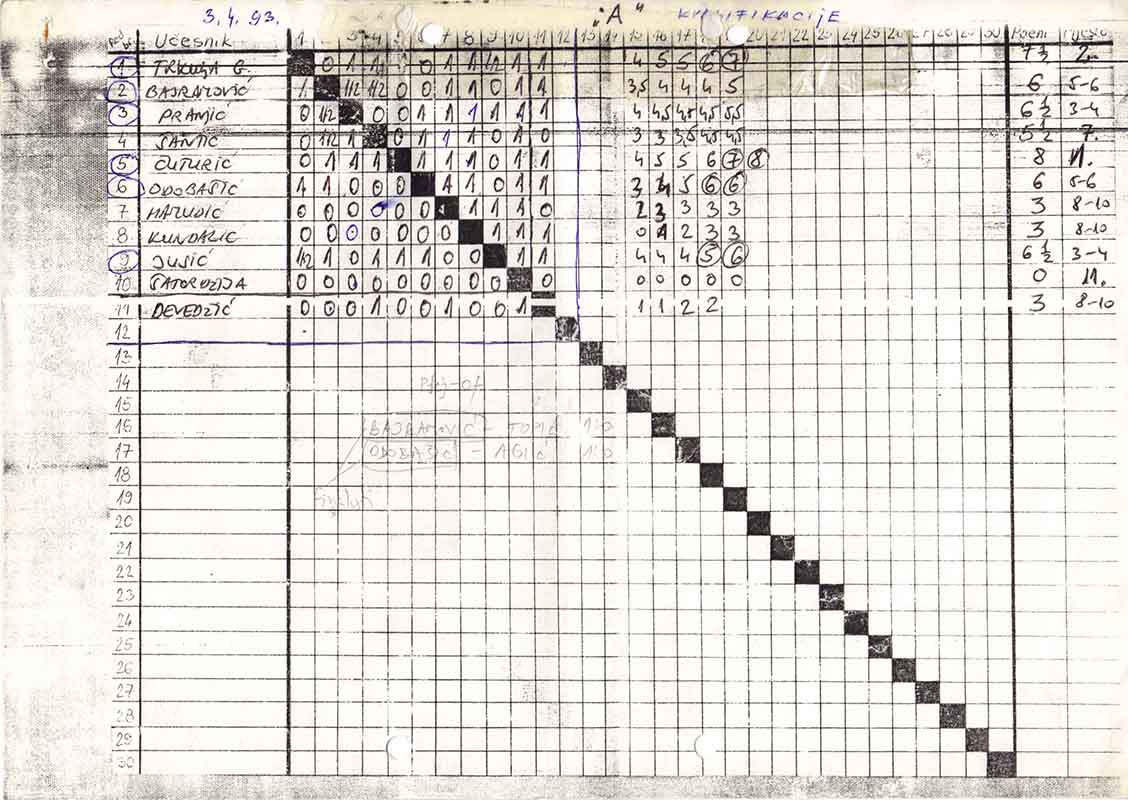 3. 4. 93. "A" KVALIFIKACIJE
Učesnik 1 3 4 5 7 8 9 10 11 12 13 14 15 16 17 19 20 21 22 23 24 25 26 27 28 29 30 Poeni Mjesto
1 TRKULJA G. 0 1 1 0 1 1 1/2 1 1 4 5 5 6 7 7 1/2 2.
2 BAJRAMOVIĆ 1 1/2 1/2 0 0 1 1 0 1 1 3,5 4 4 4 5 6 5-6
3 PRAMIĆ 0 1/2 0 0 1 1 1 1 1 1 4 4,5 4,5 4,5 5,5 6 1/2 3-4
4 ŠANTIĆ 0 1/2 1 0 1 1 1 0 1 1 3 3 3,5 4,5 4,5 5 1/2 7.
5 ČUTURIĆ 0 1 1 1 1 1 1 0 1 1 4 5 5 6 7 8 8 1.
6 ODOBAŠIĆ 1 1 0 0 0 1 1 0 1 1 3 4 5 6 6 6 5-6
7 0 0 0 0 0 0 1 1 1 0 2 3 3 3 3 3 8-10
8 0 0 0 0 0 0 0 1 1 1 0 1 2 3 3 3 8-10
9 JUSIĆ 1/2 1 0 1 1 1 0 0 1 1 4 4 4 5 6 6 1/2 3-4
10 ŠATOROVIJA 0 0 0 0 0 0 0 0 0 0 0 0 0 0 0 0 11.
11 DEVEDŽIĆ 0 0 0 1 0 0 1 0 0 1 1 1 2 2 3 8-10
12
13
14 Plej-of
15
16 BAJRAMOVIĆ - TOMIĆ 1:0
17 ODOBAŠIĆ - AGIĆ 1:0
18
19
20
21
22
23
24
25
26
27
28
29
30